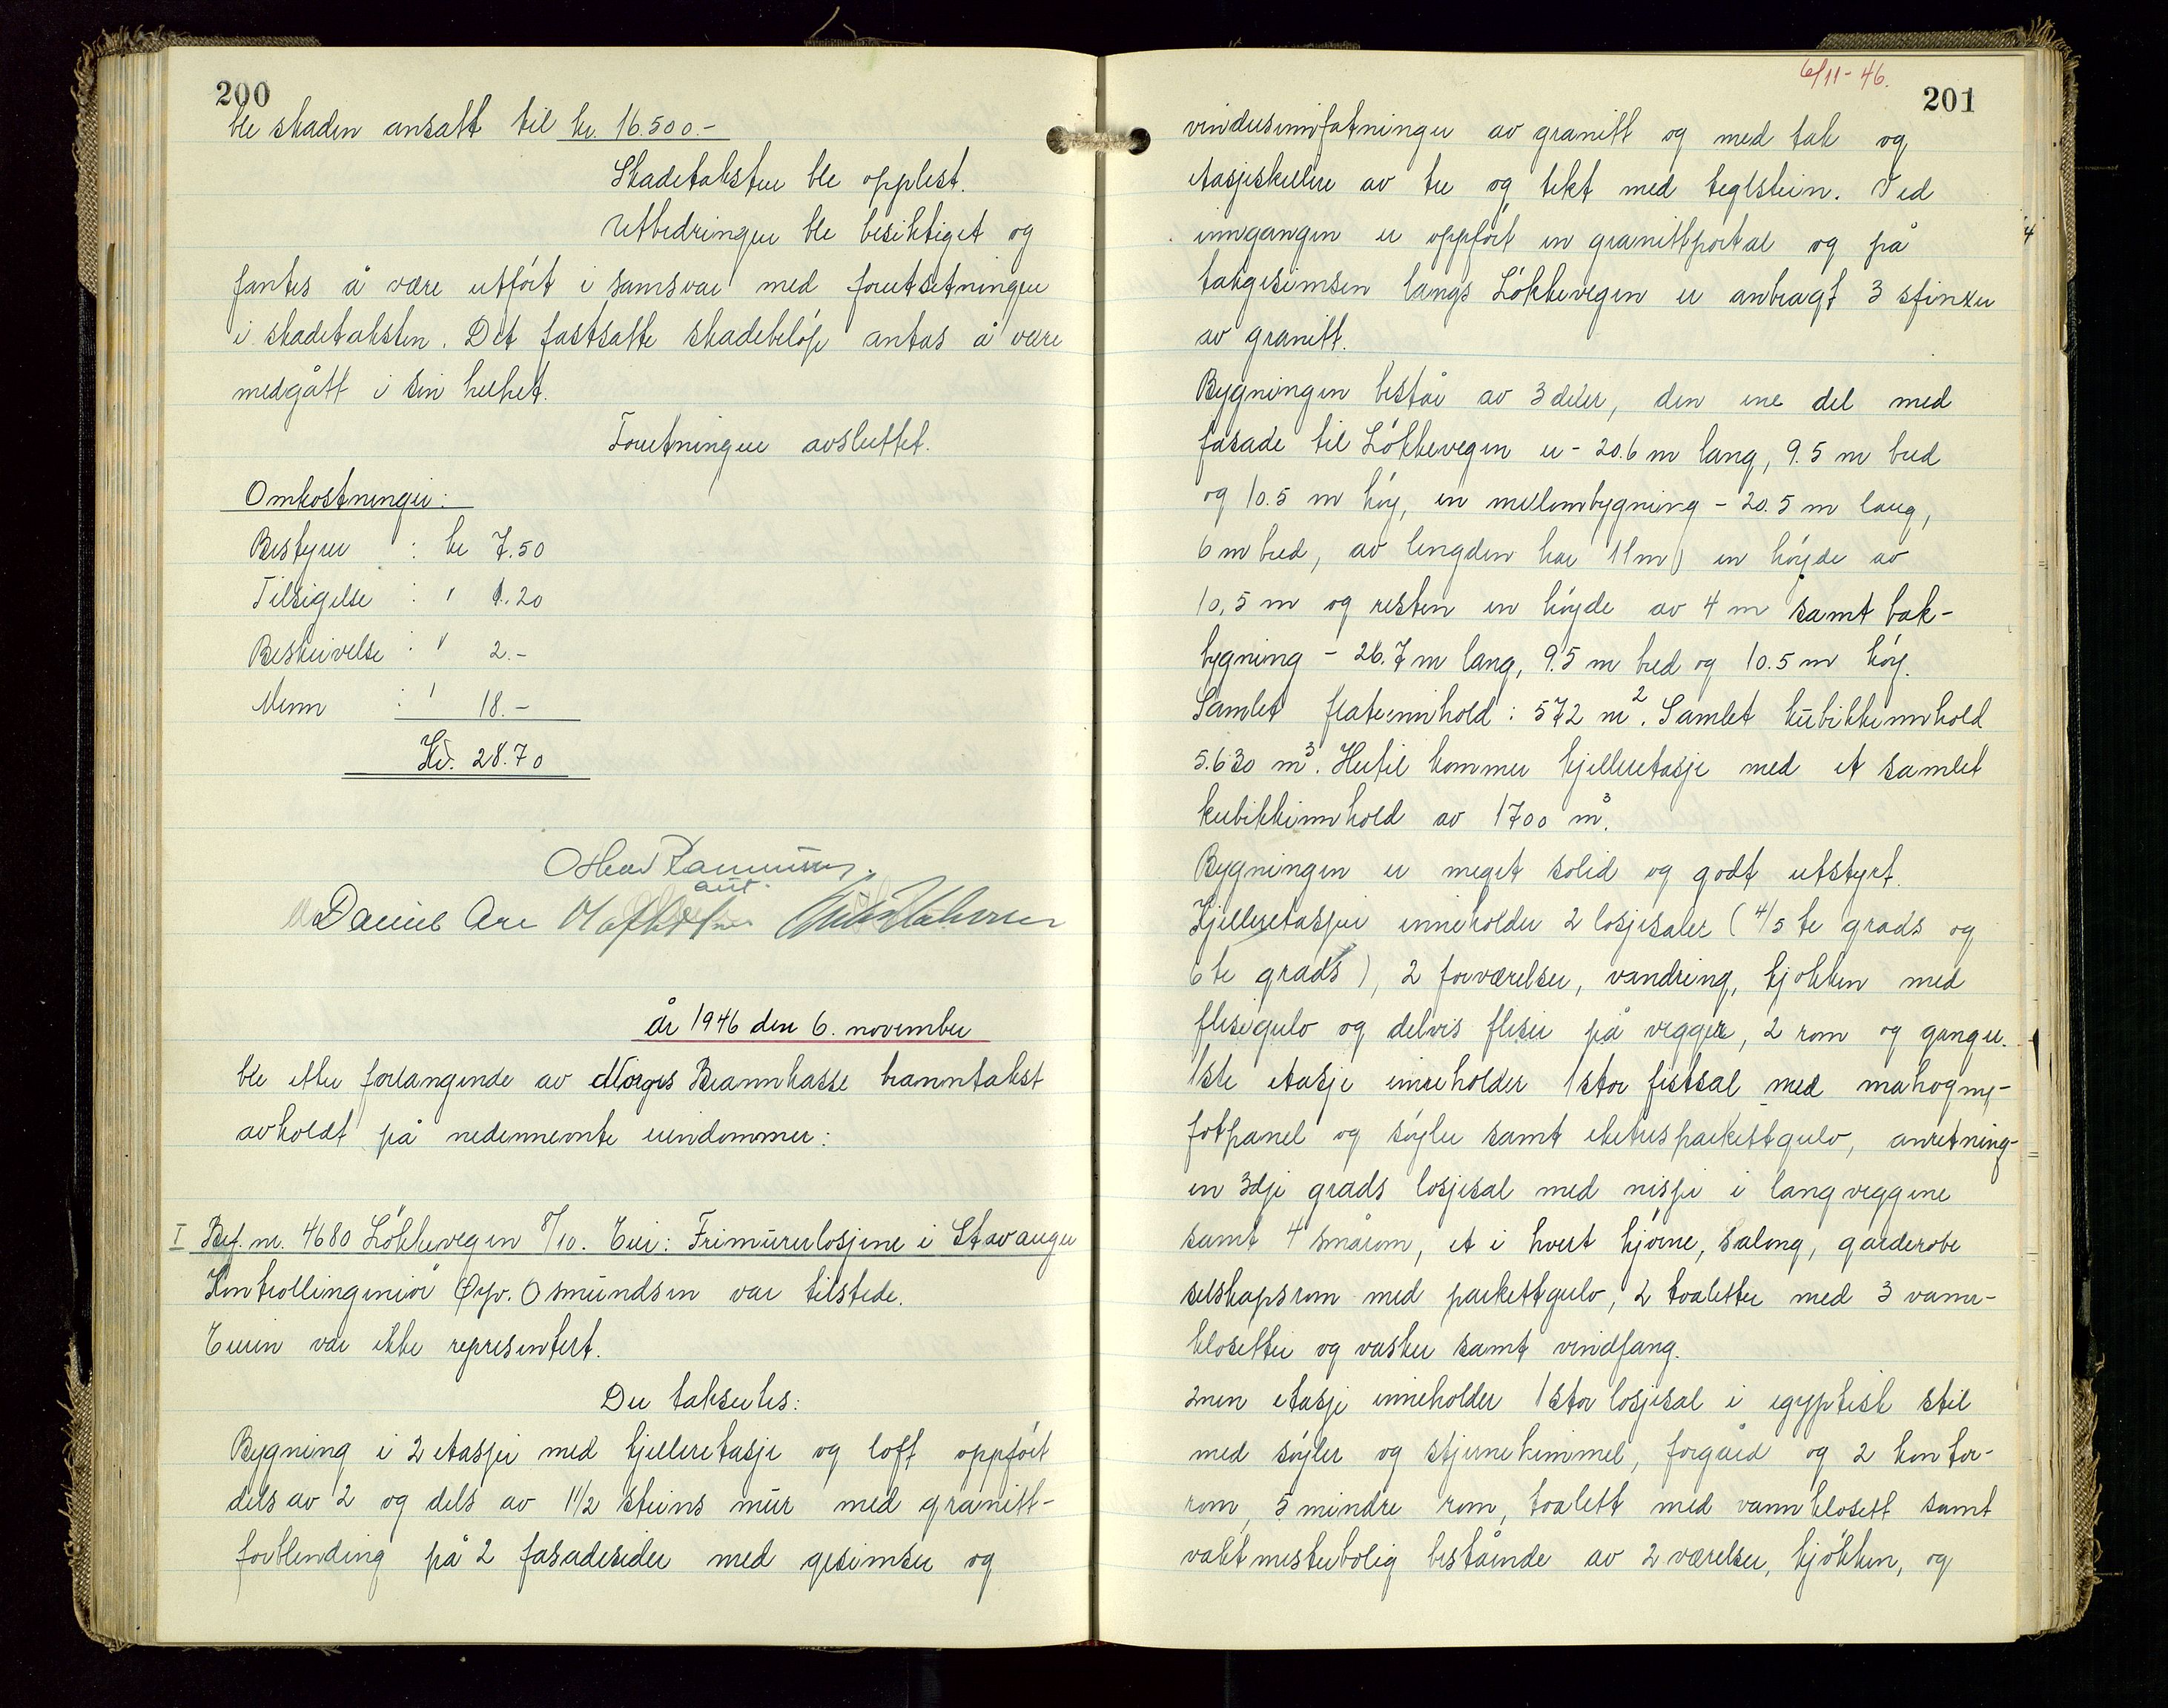 200
ble skaden ansatt til kr. 16.500.-
Skadetaksten ble opplest.
Utbedringen ble besiktiget og
fantes å være utført i samsvar med forutsetningen
i skadetaksten. Det fastsatte skadebeløp antas å være
medgått i sin helhet.
Forretningen avsluttet.
Omkostninger:
Bestyrer : kr 7.50
Tilsigelse : " 1.20
Beskrivelse : " 2.-
Menn : " 18.-
Kr. 28.70
aut.
Daniel Are
år 1946 den 6. november
ble etter forlangende av Norges Brannkasse branntakst
avholdt på nedennevnte eiendommer:
I Bef. nr. 4680 Løkkevegen 8/10. Eier: Frimurerlosjene i Stavanger
Kontrollingeniør Øyv. Osmundsen var tilstede.
Eieren var ikke representert.
Der takseres:
Bygning i 2 etasjer med kjelleretasje og loft oppført
dels av 2 og dels av 1 1/2 steins mur med granitt-
forblending på 2 fasadesider med gesimser og
6/11-46.
201
vindusinnfatninger av granitt og med tak og
etasjeskillere av tre og tekt med teglstein. Ved
inngangen er oppført en granittportal og på
takgesimsen langs Løkkevegen er anbragt 3 sfinxer
av granitt.
Bygningen består av 3 deler, den ene del med
fasade til Løkkevegen er - 20.6 m lang, 9.5 m bred
og 10.5 m høy, en mellombygning - 20.5 m lang,
6 m bred, av lengden har 11m) en høyde av
10,5 m og resten en høyde av 4 m samt bak-
bygning - 26.7 m lang, 9.5 m bred og 10.5 m høy.
Samlet flateinnhold: 572 m². Samlet kubikkinnhold
5.630 m³. Hertil kommer kjelleretasje med et samlet
kubikkinnhold av 1700 m³.
Bygningen er meget solid og godt utstyrt.
Kjelleretasjen inneholder 2 losjesaler (4/5 te grads og
6te grads), 2 forværelser, vandring, kjøkken med
flisegulv og delvis fliser på vegger, 2 rom og ganger.
1ste etasje inneholder 1 stor festsal med mahogny-
fotpanel og søyler samt eketresparkettgulv, anretning-
en 3dje grads losjesal med nisjer i langveggene
samt 4 smårom, et i hvert hjørne, salong, garderobe
selskapsrom med parkettgulv, 2 toaletter med 3 vann-
klosetter og vasker samt vindfang.
2nen etasje inneholder 1 stor losjesal i egyptisk stil
med søyler og stjernehimmel, forgård og 2 kontor-
rom, 5 mindre rom, toalett med vannklosett samt
vaktmesterbolig bestående av 2 værelser, kjøkken, og